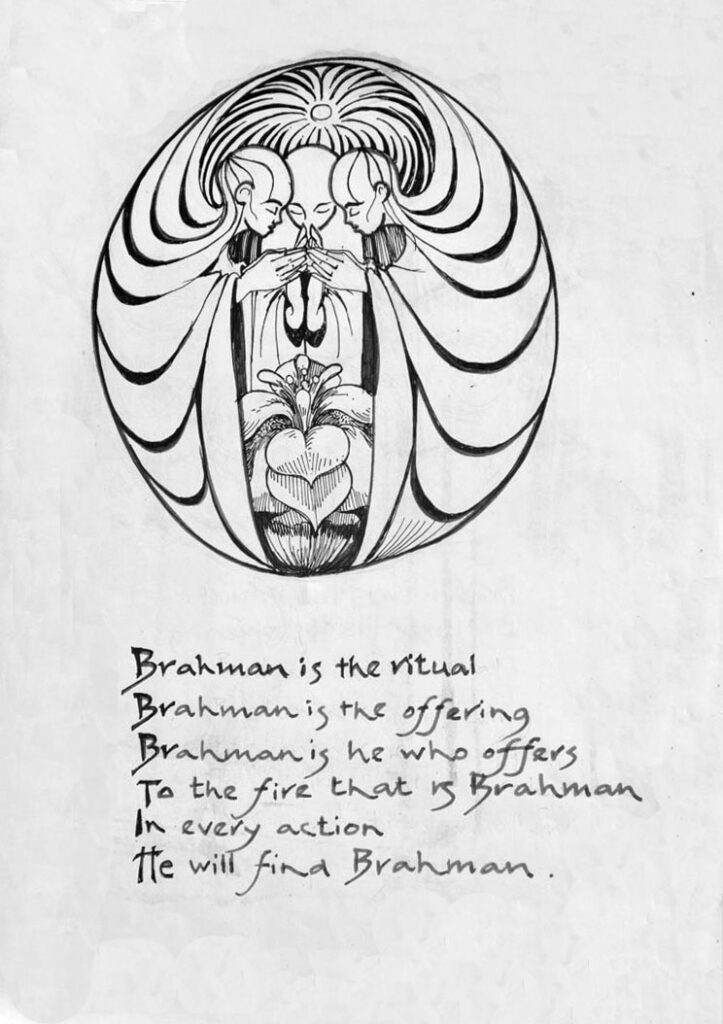 Brahman is the ritual
Brahman is the offering
Brahman is he who offers
To the fire that is Brahman
In every action
He will find Brahman.